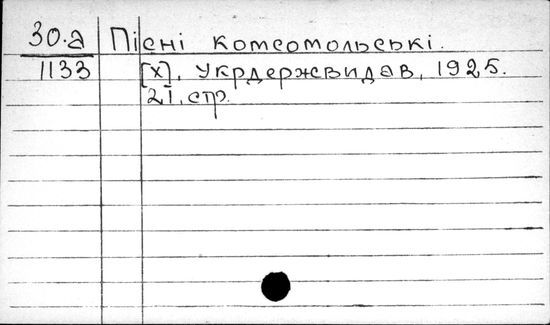 30.а Пісні комсомольські.
1133 [Х], Укрдержвидав, 1925.
21. стр.